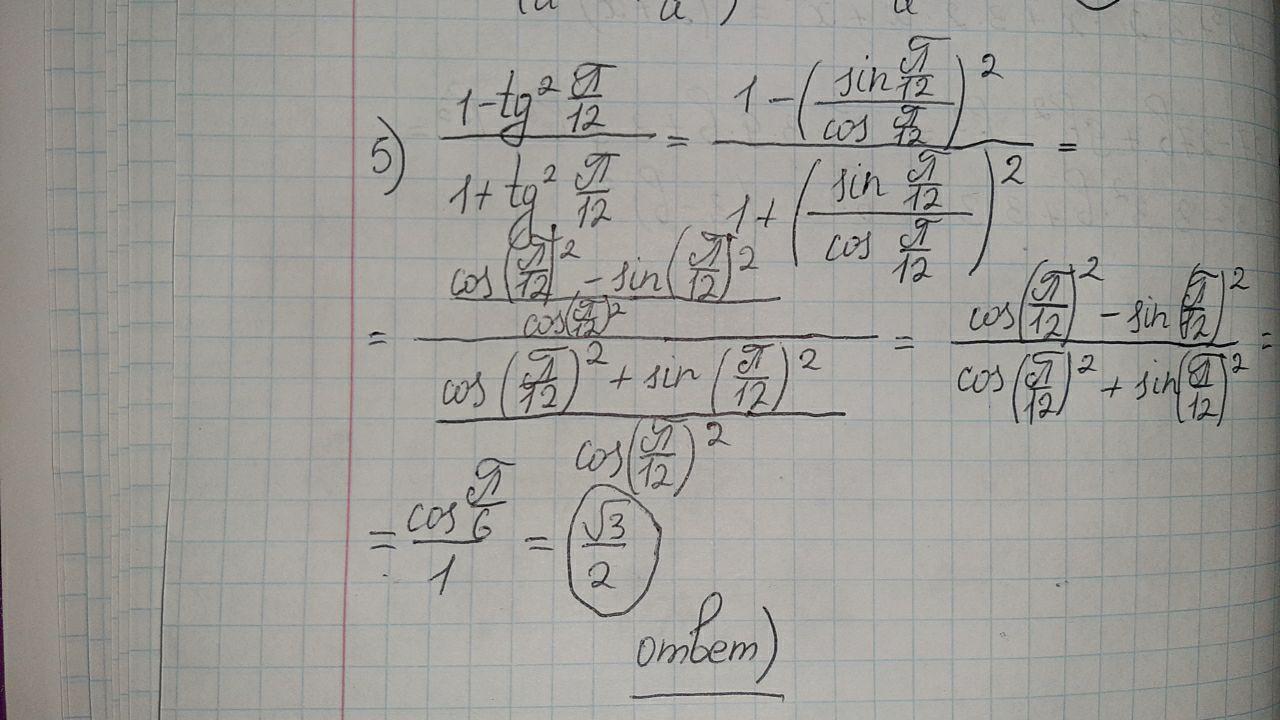 5) \frac{1-tg^2 \frac{π}{12}}{1+tg^2 \frac{π}{12}} = \frac{1-(\frac{sin \frac{π}{12}}{cos \frac{π}{12}})^2}{1+(\frac{sin \frac{π}{12}}{cos \frac{π}{12}})^2} =
= \frac{\frac{cos(\frac{π}{12})^2 - sin(\frac{π}{12})^2}{cos(\frac{π}{12})^2}}{\frac{cos(\frac{π}{12})^2 + sin(\frac{π}{12})^2}{cos(\frac{π}{12})^2}} = \frac{cos(\frac{π}{12})^2 - sin(\frac{π}{12})^2}{cos(\frac{π}{12})^2 + sin(\frac{π}{12})^2} =
= \frac{cos \frac{π}{6}}{1} = \frac{√3}{2}
ответ)